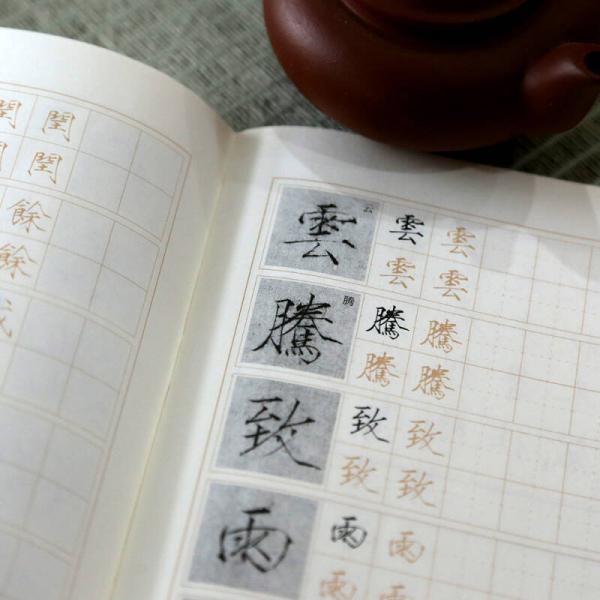 閏 閏
閏 閏
餘
餘
成
雲 云 雲 雲
雲 雲
騰 腾 騰 騰
騰 騰
致 致 致
致 致
雨 雨 雨
雨 雨